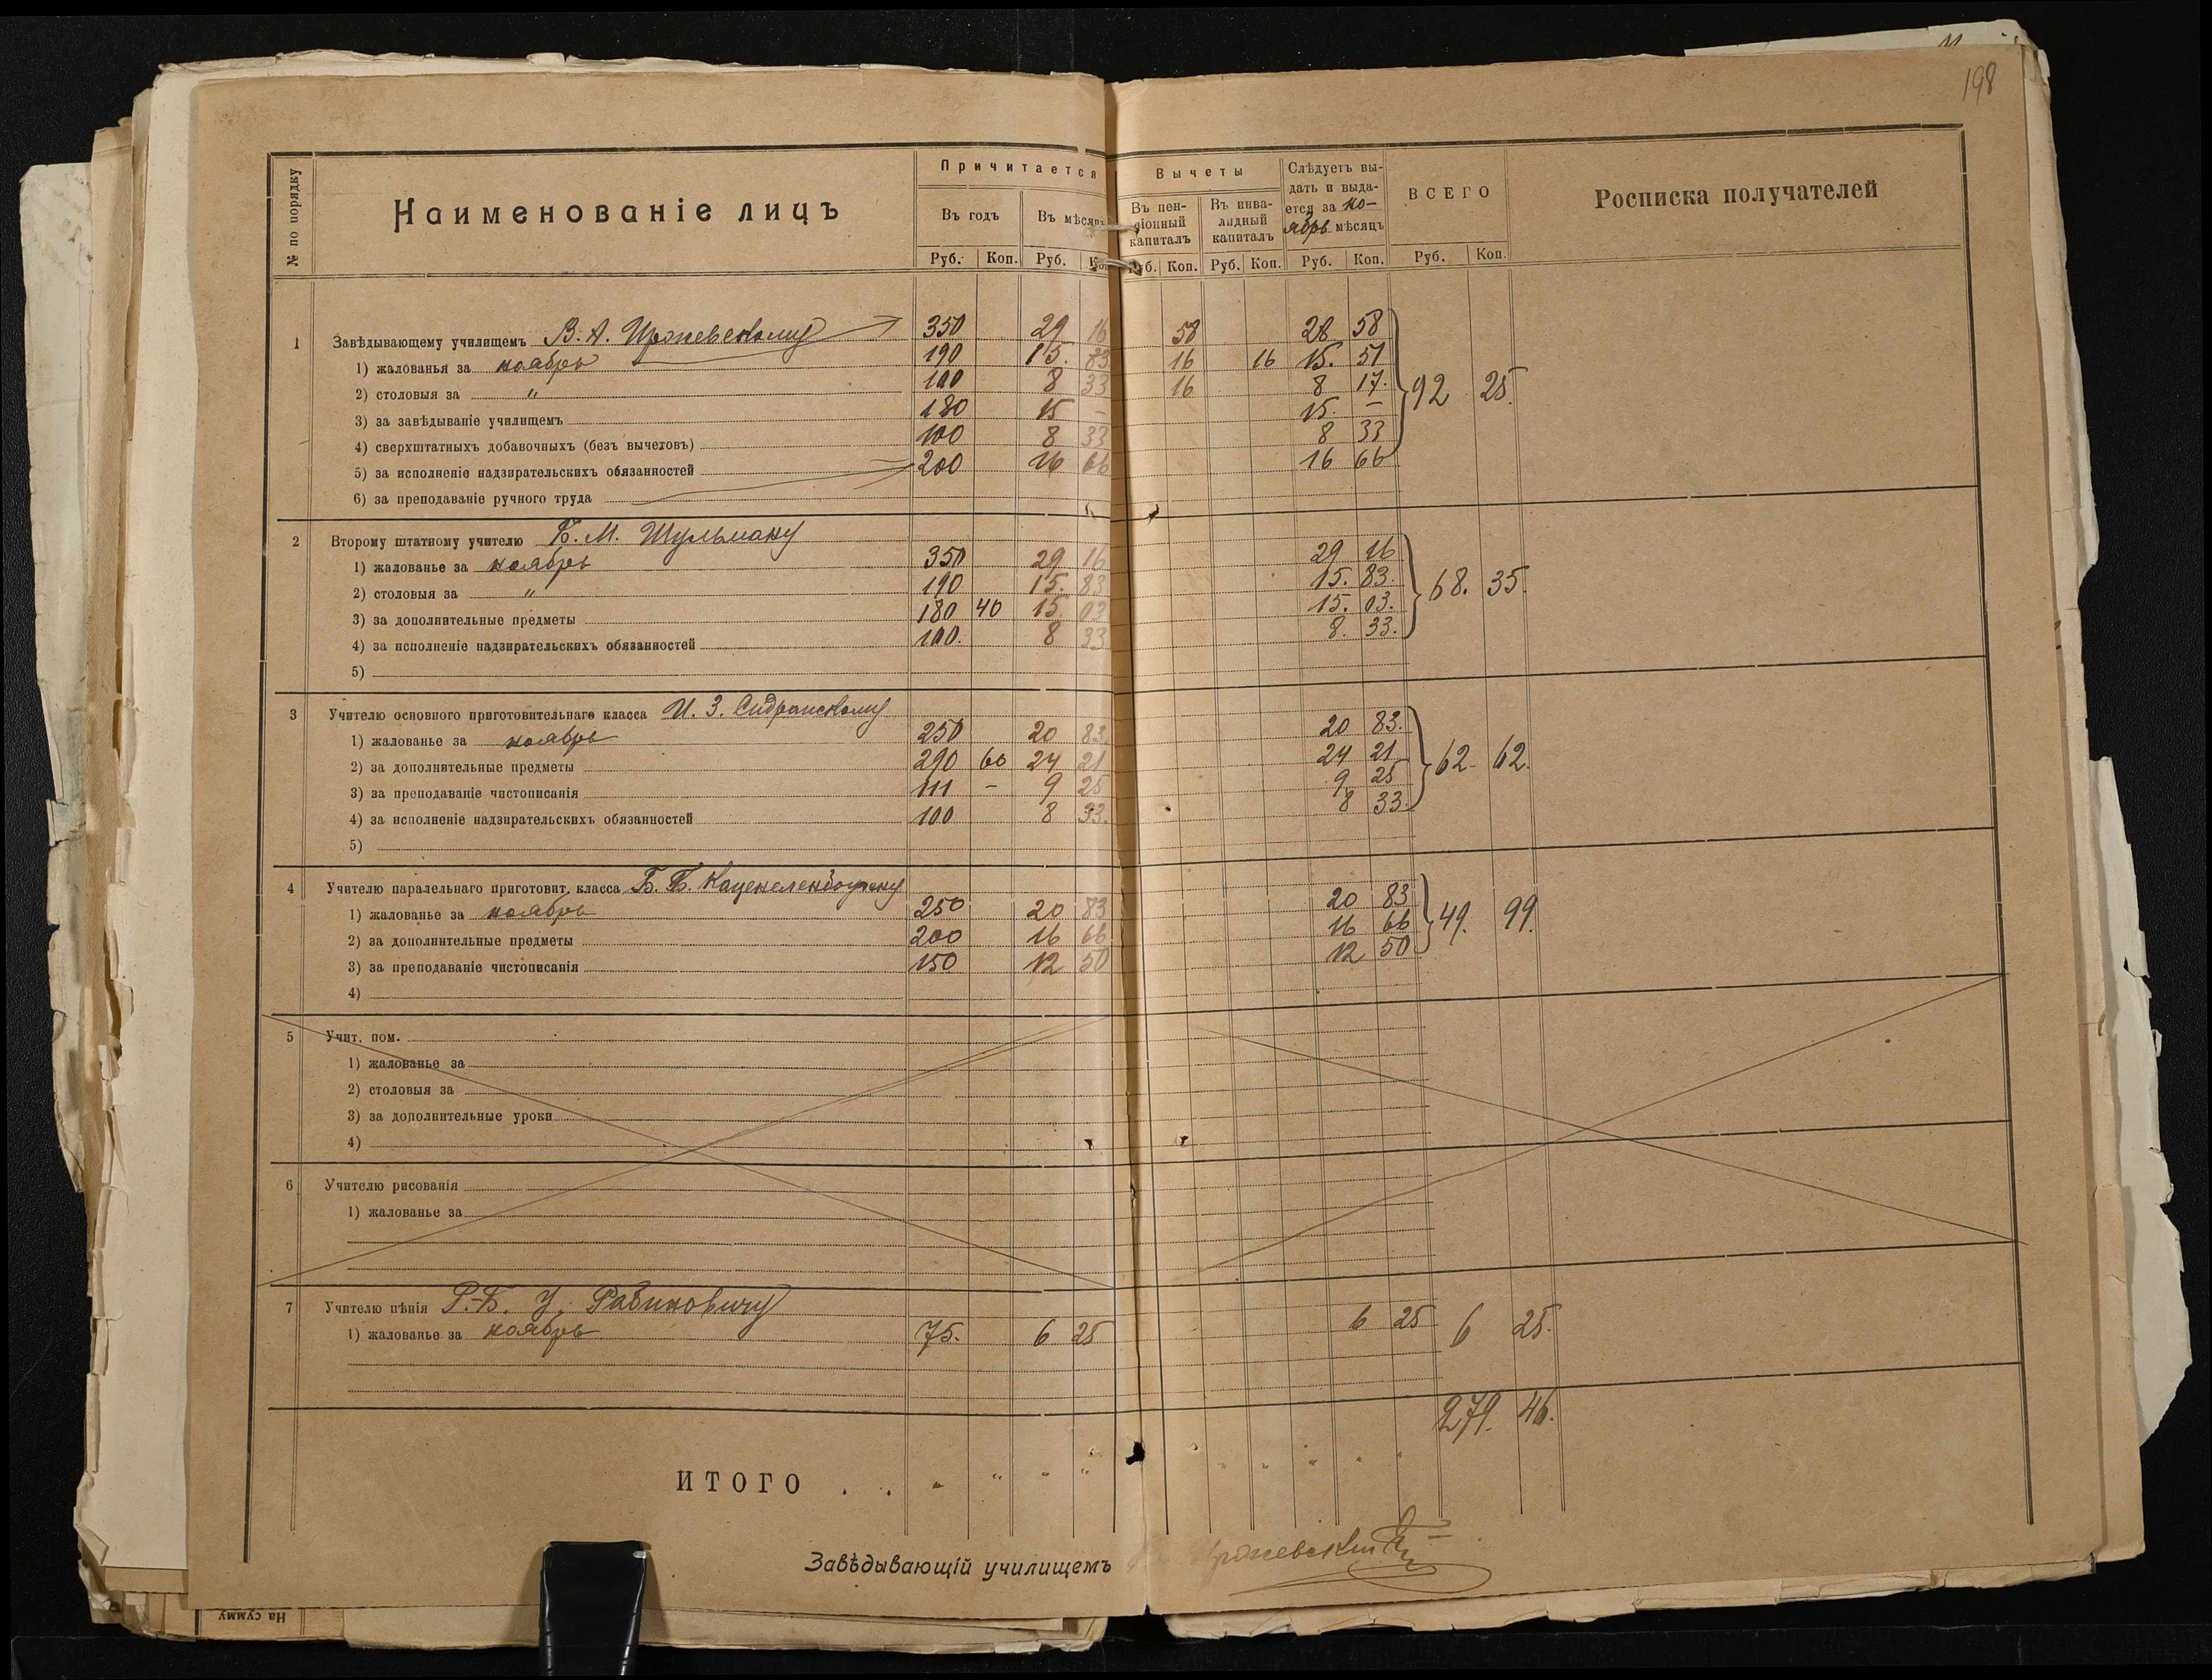 198
№ по порядку
Наименованіе лицъ
Причитается
Въ годъ
Въ мѣсяцъ
Руб. Коп. Руб. Коп.
Вычеты
Въ пенсіонный капиталъ
Въ инвалидный капиталъ
Слѣдуетъ выдать и выдается за ноябрь мѣсяцъ
ВСЕГО
Росписка получателей
Руб. Коп. Руб. Коп. Руб. Коп. Руб. Коп.
1 Завѣдывающему училищемъ В. А. 350 29 16 58 28 58
1) жалованья за ноябрь 190 15. 83 16 16 15. 51
2) столовыя за " 100 8 33 16 8 17. 92 25.
3) за завѣдываніе училищемъ 180 15 – 15. –
4) сверхштатныхъ добавочныхъ (безъ вычетовъ) 100 8 33 8 33
5) за исполненіе надзирательскихъ обязанностей 200 16 66 16 66
6) за преподаваніе ручного труда
2 Второму штатному учителю Б. М. Шульману
1) жалованье за ноябрь 350 29 16 29 16
2) столовыя за " 190 15. 83 15. 83. 68. 35.
3) за дополнительные предметы 180 40 15 03 15. 03.
4) за исполненіе надзирательскихъ обязанностей 100. 8 33 8. 33.
5)
3 Учителю основного приготовительнаго класса И. З. Сидранскому
1) жалованье за ноябрь 250 20 83. 20 83.
2) за дополнительные предметы 290 60 24 21 24 21 62 62.
3) за преподаваніе чистописанія 111 – 9 25 9 25
4) за исполненіе надзирательскихъ обязанностей 100 8 33. 8 33.
5)
4 Учителю паралельнаго приготовит. класса Б. Б. Каценеленбогену
1) жалованье за ноябрь 250 20 83 20 83
2) за дополнительные предметы 200 16 66 16 66 49. 99.
3) за преподаваніе чистописанія 150 12 50 12 50
4)
5 Учит. пом.
1) жалованье за
2) столовыя за
3) за дополнительные уроки
4)
6 Учителю рисованія
1) жалованье за
7 Учителю пѣнія Р.-Б. У. Рабиновичу
1) жалованье за ноябрь 75. 6 25 6 25 6 25.
279. 46.
ИТОГО . . " " " " " " " " "
Завѣдывающій училищемъ
На сумму